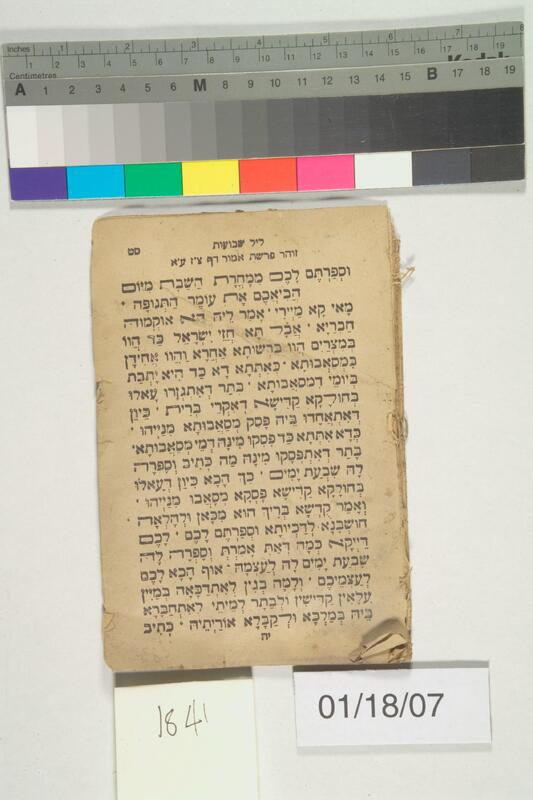 Inches 1 2 3 4 5 6 7 8
Centimetres 1 2 3 4 5 6 7 8 9 10 11 12 13 14 15 16 17 18 19
A 1 2 3 4 5 6 M 8 9 10 11 12 13 14 15 B 17 18 19
ליל שבועות סט
זוהר פרשת אמור דף צ״ז ע״א
וּסְפַרְתֶּם לָכֶם מִמָּחֳרַת הַשַּׁבָּת מִיּוֹם
הֲבִיאֲכֶם אֶת עוֹמֶר הַתְּנוּפָה׃
מָאי קָא מַיְירֵי׳ אָמַר לֵיהּ הָא אוֹקְמוּהָ
חַבְרַיָּא׳ אֲבָל תָּא חֲזֵי יִשְׂרָאֵל כַּד הֲווֹ
בְּמִצְרַיִם הֲווֹ בִּרְשׁוּתָא אָחֳרָא וַהֲווֹ אֲחִידָן
בִּמְסָאֲבוּתָא׳ כְּאִתְּתָא דָא כַּד הִיא יָתְבַת
בְּיוֹמֵי דִמְסָאֲבוּתָא׳ בָּתַר דְּאִתְגְּזָרוּ עָאלוּ
בְּחוּלָקָא קַדִּישָׁא דְּאִקְרֵי בְּרִית׳ כֵּיוָן
דְּאִתְאֲחָדוּ בֵּיהּ פָּסַק מְסָאֲבוּתָא מִנַּיְיהוּ׳
כְּדָא אִתְּתָא כַּד פָּסְקוּ מִינָּהּ דְּמֵי מְסָאֲבוּתָא׳
בָּתַר דְּאִתְפְּסָקוּ מִינָּהּ מַה כְּתִיב וְסָפְרָה
לָּהּ שִׁבְעַת יָמִים׳ כַּךְ הָכָא כֵּיוָן דְּעָאלוּ
בְּחוּלָקָא קַדִּישָׁא פָּסְקָא מְסָאֲבוּ מִנַּיְיהוּ׳
וְאָמַר קֻדְשָׁא בְּרִיךְ הוּא מִכָּאן וּלְהָלְאָה
חוּשְׁבְּנָא לְדַכְיוּתָא וּסְפַרְתֶּם לָכֶם׳ לָכֶם
דַּיְיקָא כְּמָה דְּאַתְּ אָמְרַת וְסָפְרָה לָּהּ
שִׁבְעַת יָמִים לָהּ לְעַצְמָהּ׳ אוּף הָכָא לָכֶם
לְעַצְמֵיכֶם׳ וְלָמָּה בְּגִין לְאִתְדַּכָּאָה בְּמַיִין
עִלָּאִין קַדִּישִׁין וּלְבָתַר לְמֵיתֵי לְאִתְחַבְּרָא
בֵּיהּ בְּמַלְכָּא וּלְקַבְּלָא אוֹרַיְתֵיהּ׳ כְּתִיב
יה
1841
01/18/07